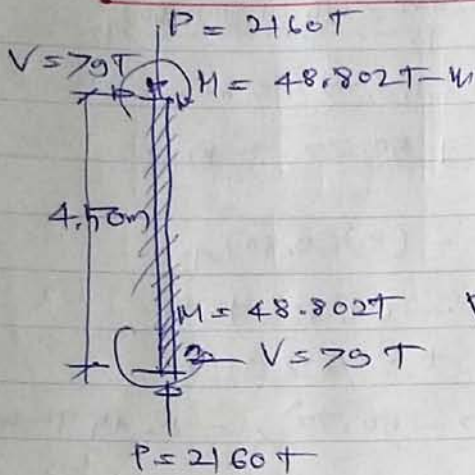 P = 2160T
V = 79T
M = 48.802T-m
4.50m
M = 48.802T
V = 79 T
P = 2160 T